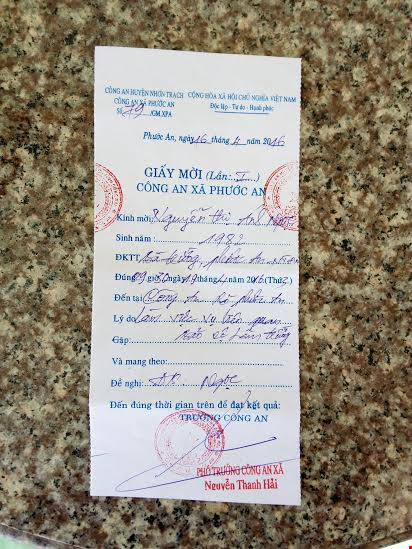 CÔNG AN HUYỆN NHƠN TRẠCH
CÔNG AN XÃ PHƯỚC AN
Số /GM.XPA
CỘNG HÒA XÃ HỘI CHỦ NGHĨA VIỆT NAM
Độc lập - Tự do - Hạnh phúc
Phước An, ngày 16 tháng 4 năm 2016
GIẤY MỜI (Lần: I)
CÔNG AN XÃ PHƯỚC AN
Kính mời: Nguyễn Thị Ngọc
Sinh năm: 1982
ĐKTT: phước An
Đúng 09g 30 ngày 19 tháng 4 năm 2016 (Thứ: )
Đến tại: Công An Xã phước An
Lý do: Làm việc vụ liên quan
Gặp:
Và mang theo:
Đề nghị: Ngọc
Đến đúng thời gian trên để đạt kết quả:
TRƯỞNG CÔNG AN
PHÓ TRƯỞNG CÔNG AN XÃ
Nguyễn Thanh Hải